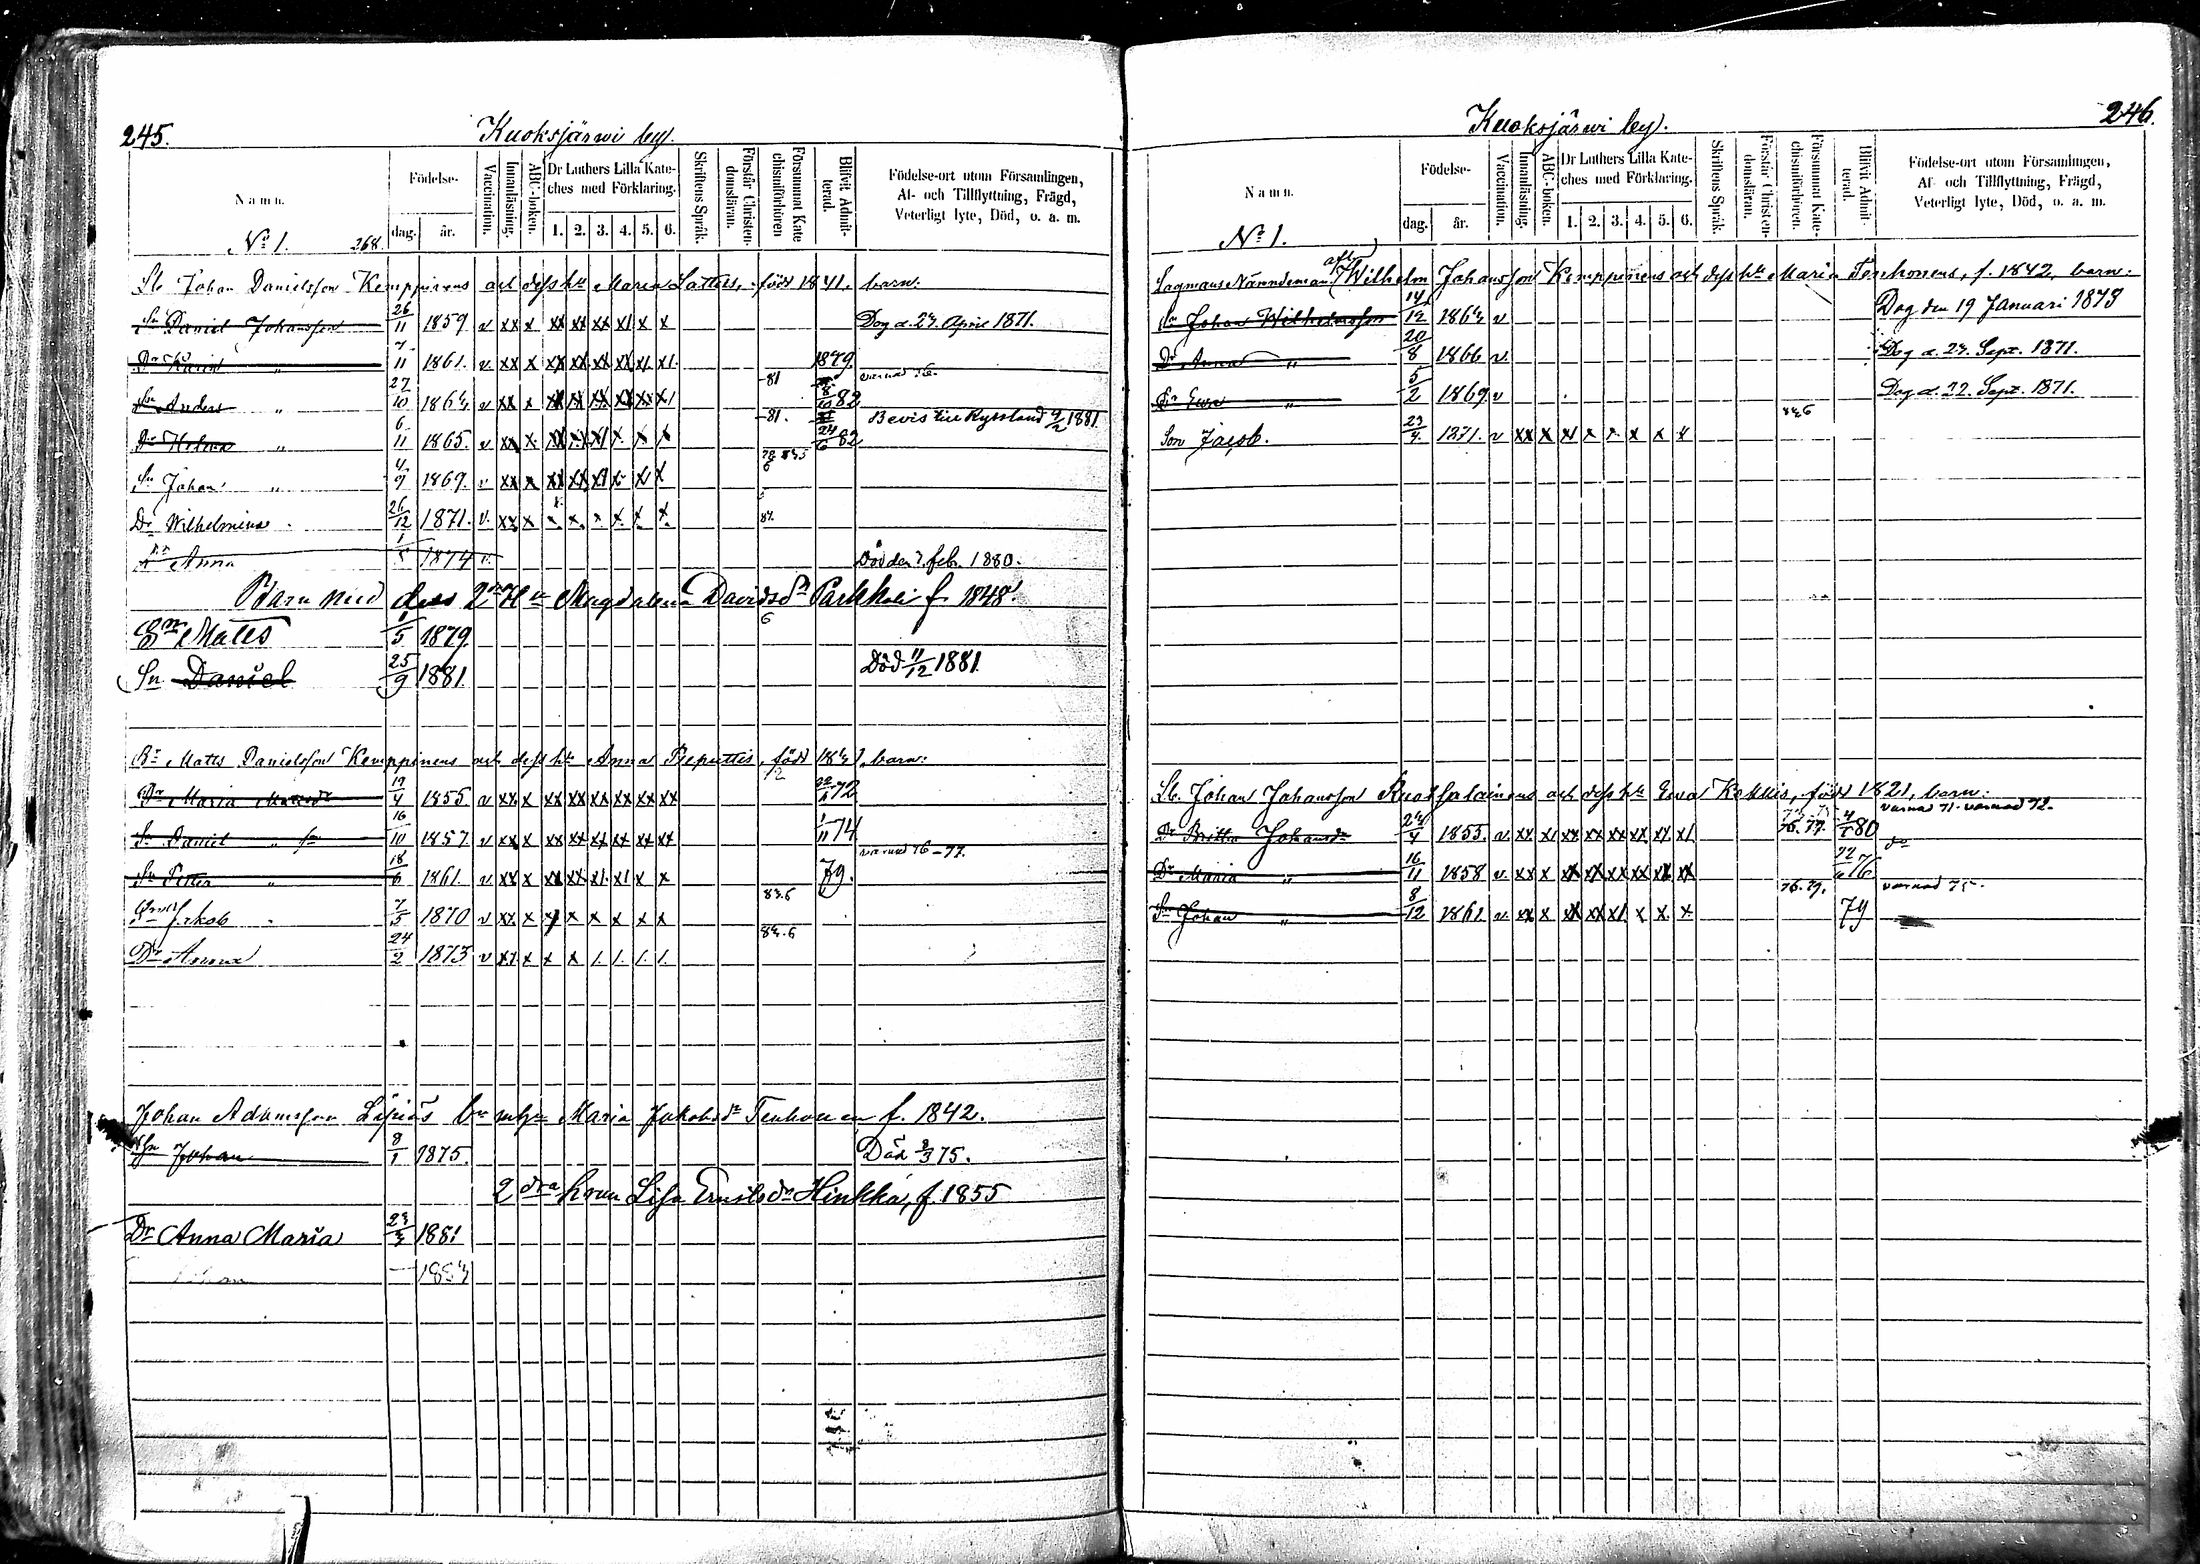 245.
Kuoksjärwi by.
Namn.
Födelse-
dag.
år.
Vaccination.
Innanläsning.
ABC-boken.
Dr Luthers Lilla Kate-
ches med Förklaring.
1. 2. 3. 4. 5. 6.
Skriftens Språk.
Förstår Christen-
domsläran.
Försummat Kate
chismiförhören
Blifvit Admit-
terad.
Födelse-ort utom Församlingen,
Af- och Tillflyttning, Frägd,
Veterligt lyte, Död, o. a. m.
No 1. 268.
Johan Danielsson Kemppinens och dess hu Maria Lattus, född 1841. barn:
Sn Daniel Johansson 26/11 1859 v xx x xx xx xx x1 x x Dog d. 23. April 1871.
Dr Karin " 11 1861. v xx x xx xx xx xx x1 x1. 1879.
Sn Anders " 27/10 1863 v xx x 81 82
Dr Helena " 6/11 1865. v xx x 81. 24/6 82 Bevis till Ryssland 9/2 1881
Sn Johan " 4/9 1869. v xx x
Dr Wilhelmina 26/12 1871. v. xx x x x x x x x
Dr Anna 1/5 1874 v. Död den 7. feb. 1880.
Barn med dess 2dra Hu Magdalena Davidsdr Parkkoi f. 1848.
Sn Matts 6/5 1879.
Sn Daniel 25/9 1881. Död 11/12 1881.
Matts Danielsson Kemppinens och dess hu Anna född barn:
Dr Maria Mattsdr 19/4 1855 v xx x xx xx xx xx xx xx 72
Sn Daniel " 16/10 1857. v xx x xx xx xx xx xx xx 1/11 74
Sn Petter " 18/6 1861. v xx x xx xx x1 x1 x x 79. varnad 76-77.
Jakob 7/5 1870 v xx x x x x x x x 83.6
Dr Anna 24/2 1873 v xx x x x 1. 1. 1. 1. 83.6
Johan Adamsson m hu Maria Jakobsdr Tenhonen f. 1842.
Sn Johan 8/1 1875. Död 8/3 75.
2dra hrun Lisa Ernstsdr Hinkka, f. 1855
Dr Anna Maria 23/3 1881
246.
Kuoksjärwi by.
Namn.
Födelse-
dag.
år.
Vaccination.
Innanläsning.
ABC-boken.
Dr Luthers Lilla Kate-
ches med Förklaring.
1. 2. 3. 4. 5. 6.
Skriftens Språk.
Förstår Christen-
domsläran.
Försummat Kate-
chismiförhören.
Blifvit Admit-
terad.
Födelse-ort utom Församlingen,
Af- och Tillflyttning, Frägd,
Veterligt lyte, Död, o. a. m.
No 1.
Lagmans Nämndeman afl. Wilhelm Johansson Kemppinens och dess hu Maria Tenhonens, f. 1842, barn:
Sn Johan Wilhelmsson 14/12 1863 v Dog den 19 Januari 1873
Dr Anna " 20/8 1866 v. Dog d. 23. Sept. 1871.
Dr Ewa " 5/2 1869. v Dog d. 22. Sept. 1871.
Son Jacob. 23/4. 1871. v xx x x1 x x x x x 83.6
Johan Johansson och dess hu Ewa Kekkis, född 1821, barn:
Dr Britta Johansdr 24/4 1855. v. xx x1 xx xx xx xx x1. x1 76. 77. 80 varnad 71. varnad 72.
Dr Maria " 16/11 1858 v. xx x xx xx xx xx xx xx 76 do
Sn Johan " 8/12 1861. v. xx x xx xx x1 x x. x 76.79. 79 varnad 75.